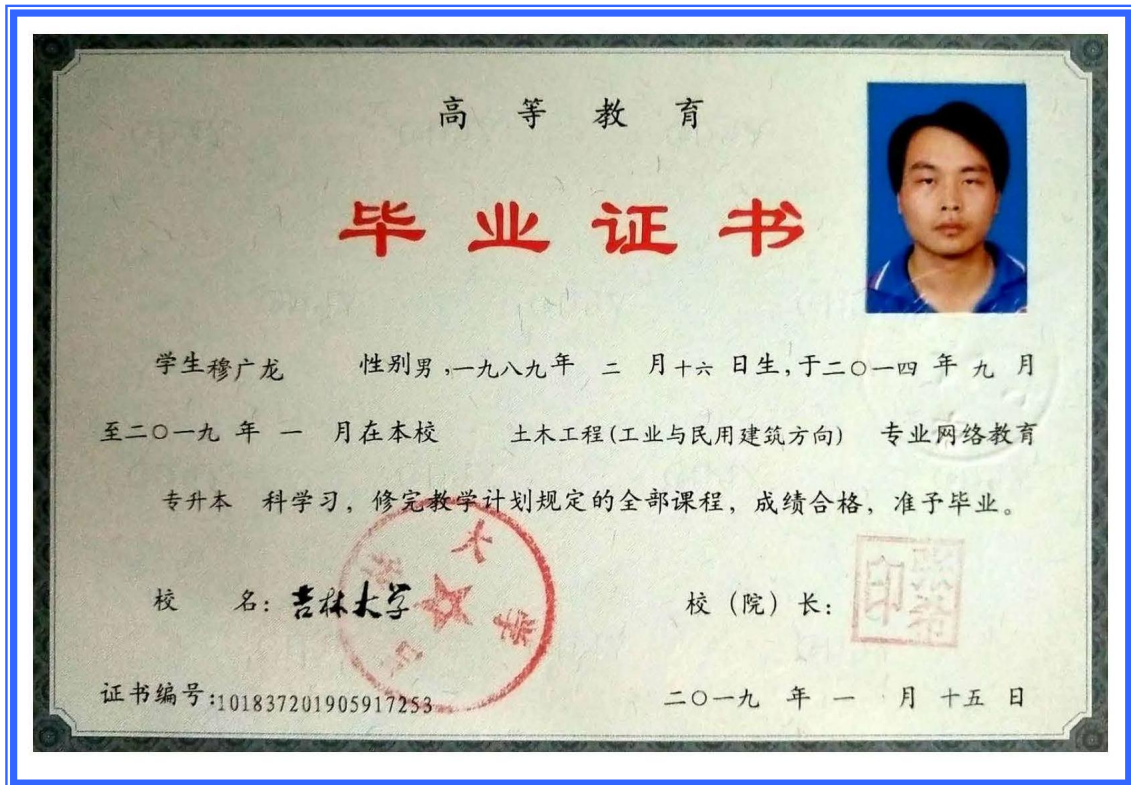 高等教育
毕业证书
学生穆广龙 性别男,一九八九年 二 月十六 日生,于二〇一四 年 九 月
至二〇一九 年 一 月在本校 土木工程(工业与民用建筑方向) 专业网络教育
专升本 科学习, 修完教学计划规定的全部课程, 成绩合格, 准予毕业。
校 名: 吉林大学 校 (院) 长:
吉林大学
证书编号:101837201905917253 二〇一九 年 一 月 十五 日